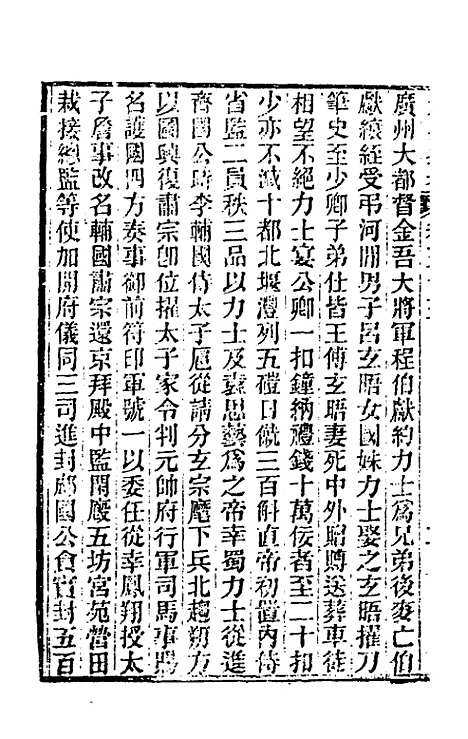 廣州大都督金吾大將軍程伯獻約力士爲兄弟後麥亡伯
獻縗絰受弔河間男子呂玄晤女國姝力士娶之玄晤擢刀
筆史至少卿子弟仕皆王傅玄晤妻死中外昭賻送葬車徒
相望不絕力士宴公卿一扣鐘納禮錢十萬佞者至二十扣
少亦不減十都北堰灃列五磑日僦三百斛直帝初置內侍
省監二員秩三品以力士及袁思藝爲之帝幸蜀力士從進
齊國公時李輔國侍太子扈從請分玄宗麾下兵北趨朔方
以圖興復肅宗卽位擢太子家令判元帥府行軍司馬事賜
名護國四方奏事御前符印軍號一以委任從幸鳳翔授太
子詹事改名輔國肅宗還京拜殿中監閑廄五坊宮苑營田
栽接總監等使加開府儀同三司進封郕國公食實封五百